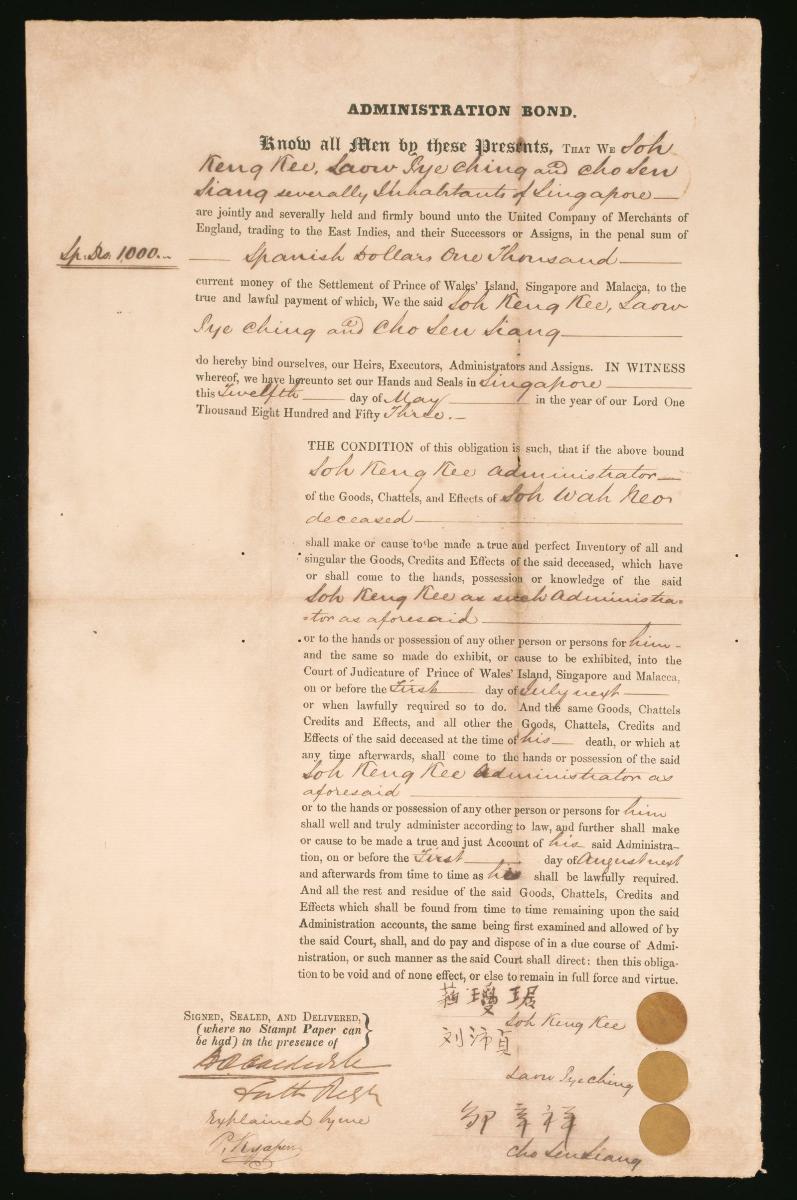 ADMINISTRATION BOND.
Know all Men by these Presents, THAT WE Soh
Keng Kee, Laow Jye Ching and Cho Sen
Siang severally Inhabitants of Singapore
are jointly and severally held and firmly bound unto the United Company of Merchants of
England, trading to the East Indies, and their Successors or Assigns, in the penal sum of
Sp. Drs. 1,000.
Spanish Dollars One Thousand
current money of the Settlement of Prince of Wales' Island, Singapore and Malacca, to the
true and lawful payment of which, We the said Soh Keng Kee, Laow
Jye Ching and Cho Sen Siang
do hereby bind ourselves, our Heirs, Executors, Administrators and Assigns. IN WITNESS
whereof, we have hereunto set our Hands and Seals in Singapore
this Twelfth day of May in the year of our Lord One
Thousand Eight Hundred and Fifty Three.
THE CONDITION of this obligation is such, that if the above bound
Soh Keng Kee Administrator
of the Goods, Chattels, and Effects of Soh Wah Neo
deceased
shall make or cause to be made a true and perfect Inventory of all and
singular the Goods, Credits and Effects of the said deceased, which have
or shall come to the hands, possession or knowledge of the said
Soh Keng Kee as such Administra-
-tor as aforesaid
or to the hands or possession of any other person or persons for him
and the same so made do exhibit, or cause to be exhibited, into the
Court of Judicature of Prince of Wales' Island, Singapore and Malacca,
on or before the First day of July next
or when lawfully required so to do. And the same Goods, Chattels
Credits and Effects, and all other the Goods, Chattels, Credits and
Effects of the said deceased at the time of his death, or which at
any time afterwards, shall come to the hands or possession of the said
Soh Keng Kee Administrator as
aforesaid
or to the hands or possession of any other person or persons for him
shall well and truly administer according to law, and further shall make
or cause to be made a true and just Account of his said Administra-
tion, on or before the First day of August next
and afterwards from time to time as he shall be lawfully required.
And all the rest and residue of the said Goods, Chattels, Credits and
Effects which shall be found from time to time remaining upon the said
Administration accounts, the same being first examined and allowed of by
the said Court, shall, and do pay and dispose of in a due course of Admi-
nistration, or such manner as the said Court shall direct: then this obliga-
tion to be void and of none effect, or else to remain in full force and virtue.
SIGNED, SEALED, AND DELIVERED,
(where no Stampt Paper can
be had) in the presence of
Explained by me
琚
Soh Keng Kee
刘沛貞
Laow Jye Ching
邹章祥
Cho Sen Siang